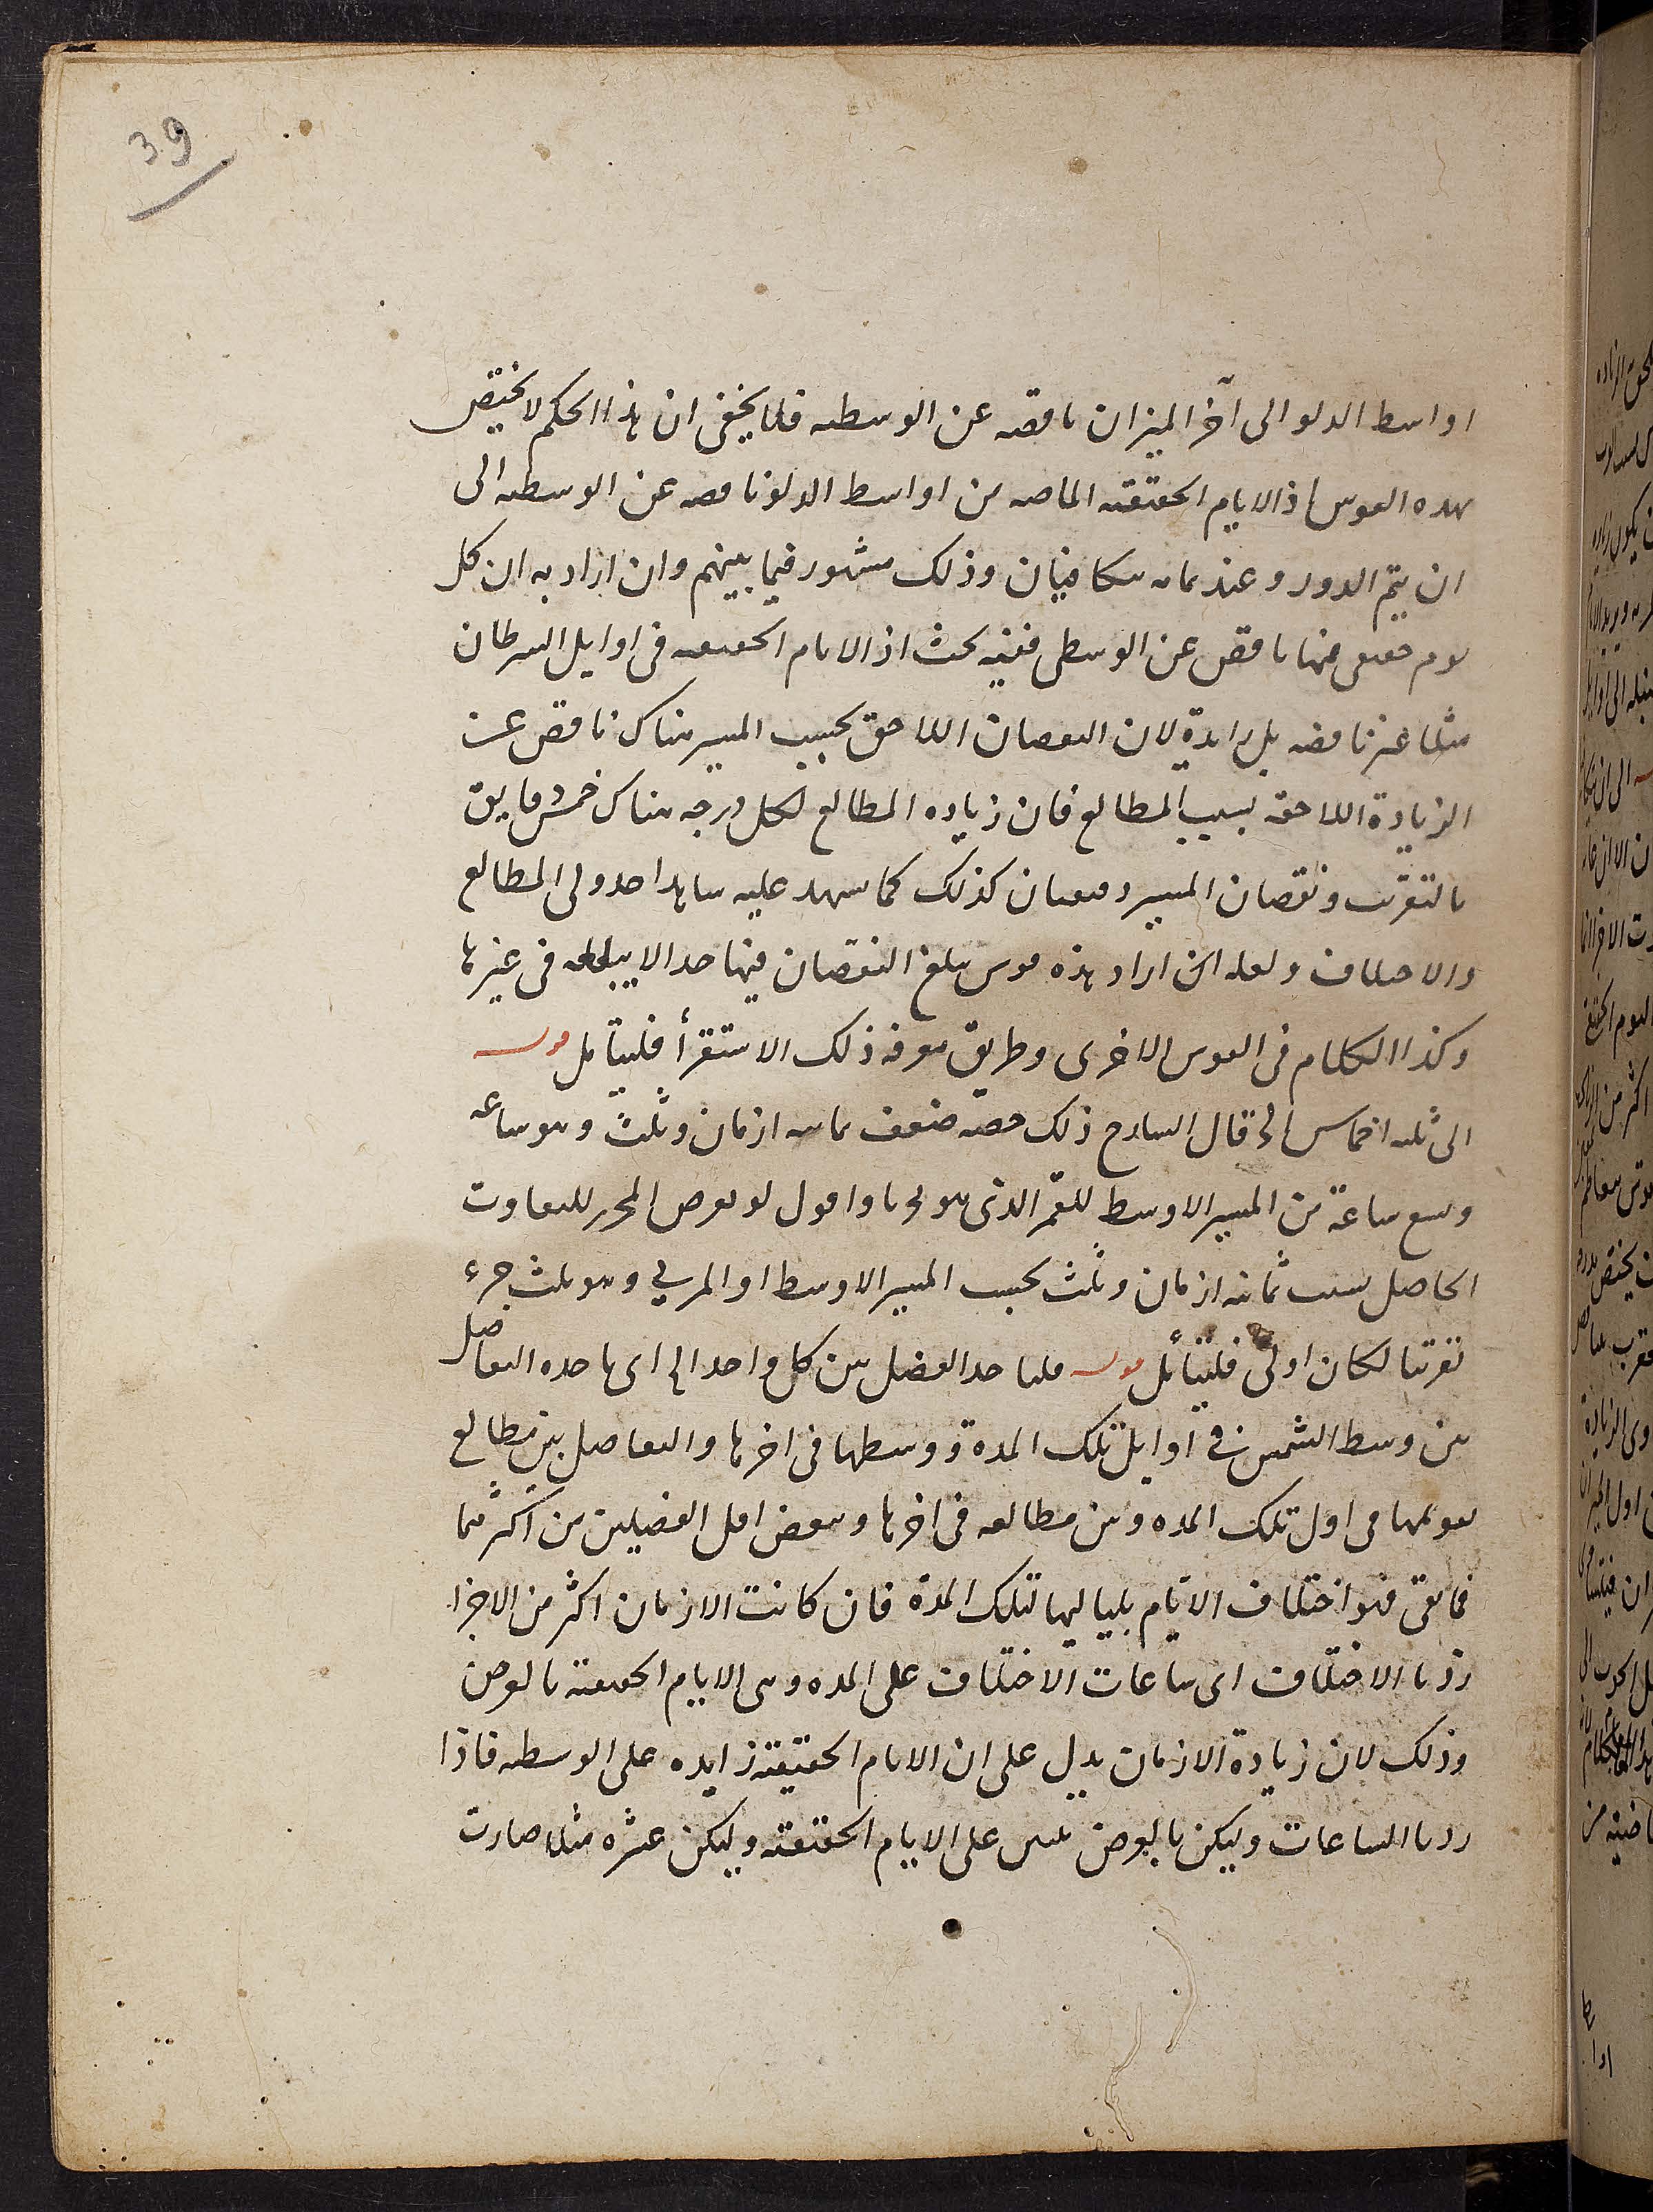 39
اواسط الدلو الى آخر الميزان ناقصه عن الوسطيه فلا يخفى ان هذا الحكم لا يختص
بهذه القوس اذ الايام الحقيقيه الماضيه من اواسط الدلو ناقصه عن الوسطيه الى
ان يتم الدور وعند تمامه يتكافيان وذلك مشهور فيما بينهم وان اراد به ان كل
يوم حقيقى منها ناقص عن الوسطى ففيه بحث اذ الايام الحقيقيه فى اوايل السرطان
مثلا غير ناقصه بل زايدة لان النقصان اللاحق بحسب المسير هناك ناقص عن
الزيادة اللاحقه بسبب المطالع فان زياده المطالع لكل درجه هناك خمس دقايق
بالتقريب ونقصان المسير دقيقتان كذلك كما يشهد عليه شاهدا جدولى المطالع
والاختلاف ولعله ان اراد هذه قوس يبلغ النقصان فيها حدا لا يبلغه فى غيرها
وكذا الكلام فى القوس الاخرى وطريق معرفه ذلك الاستقرأ فليتأمل قوله
الى ثلثه اخماس الخ قال الشارح ذلك حصه ضعف ثمانيه ازمان وثلث وهو ساعه
وتسع ساعة من المسير الاوسط للقمر الذى هو واقول لو تعرض المحرر للتفاوت
الحاصل بسبب ثمانيه ازمان وثلث بحسب المسير الاوسط او المرى وهو ثلث جزء
تقريبا لكان اولى فليتأمل قوله فلناخذ الفضل بين كل واحد الخ اى ناخذه التفاضل
بين وسط الشمس فى اوايل تلك المدة ووسطها فى اخرها والتفاضل بين مطالع
تقويمها فى اول تلك المده وبين مطالعه فى اخرها وننقص اقل الفضلين من اكثرهما
فما بقى فهو اختلاف الايام بلياليها لتلك المدة فان كانت الازمان اكثر من الاجزا
زدنا الاختلاف اى ساعات الاختلاف على المده وهى الايام الحقيقية بالفرض
وذلك لان زيادة الازمان يدل على ان الايام الحقيقية زايده على الوسطيه فاذا
زدنا الساعات وليكن بالفرض على الايام الحقيقيه وليكن عشره مثلا صارت